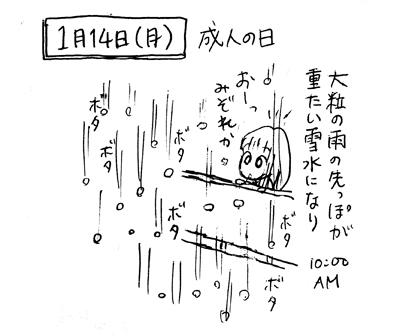 1月14日(月)
成人の日
大粒の雨の先っぽが
重たい雪水になり
10:00
AM
おーっ
みぞれか
ボタ
ボタ
ボタ
ボタ
ボタ
ボタ
ボタ